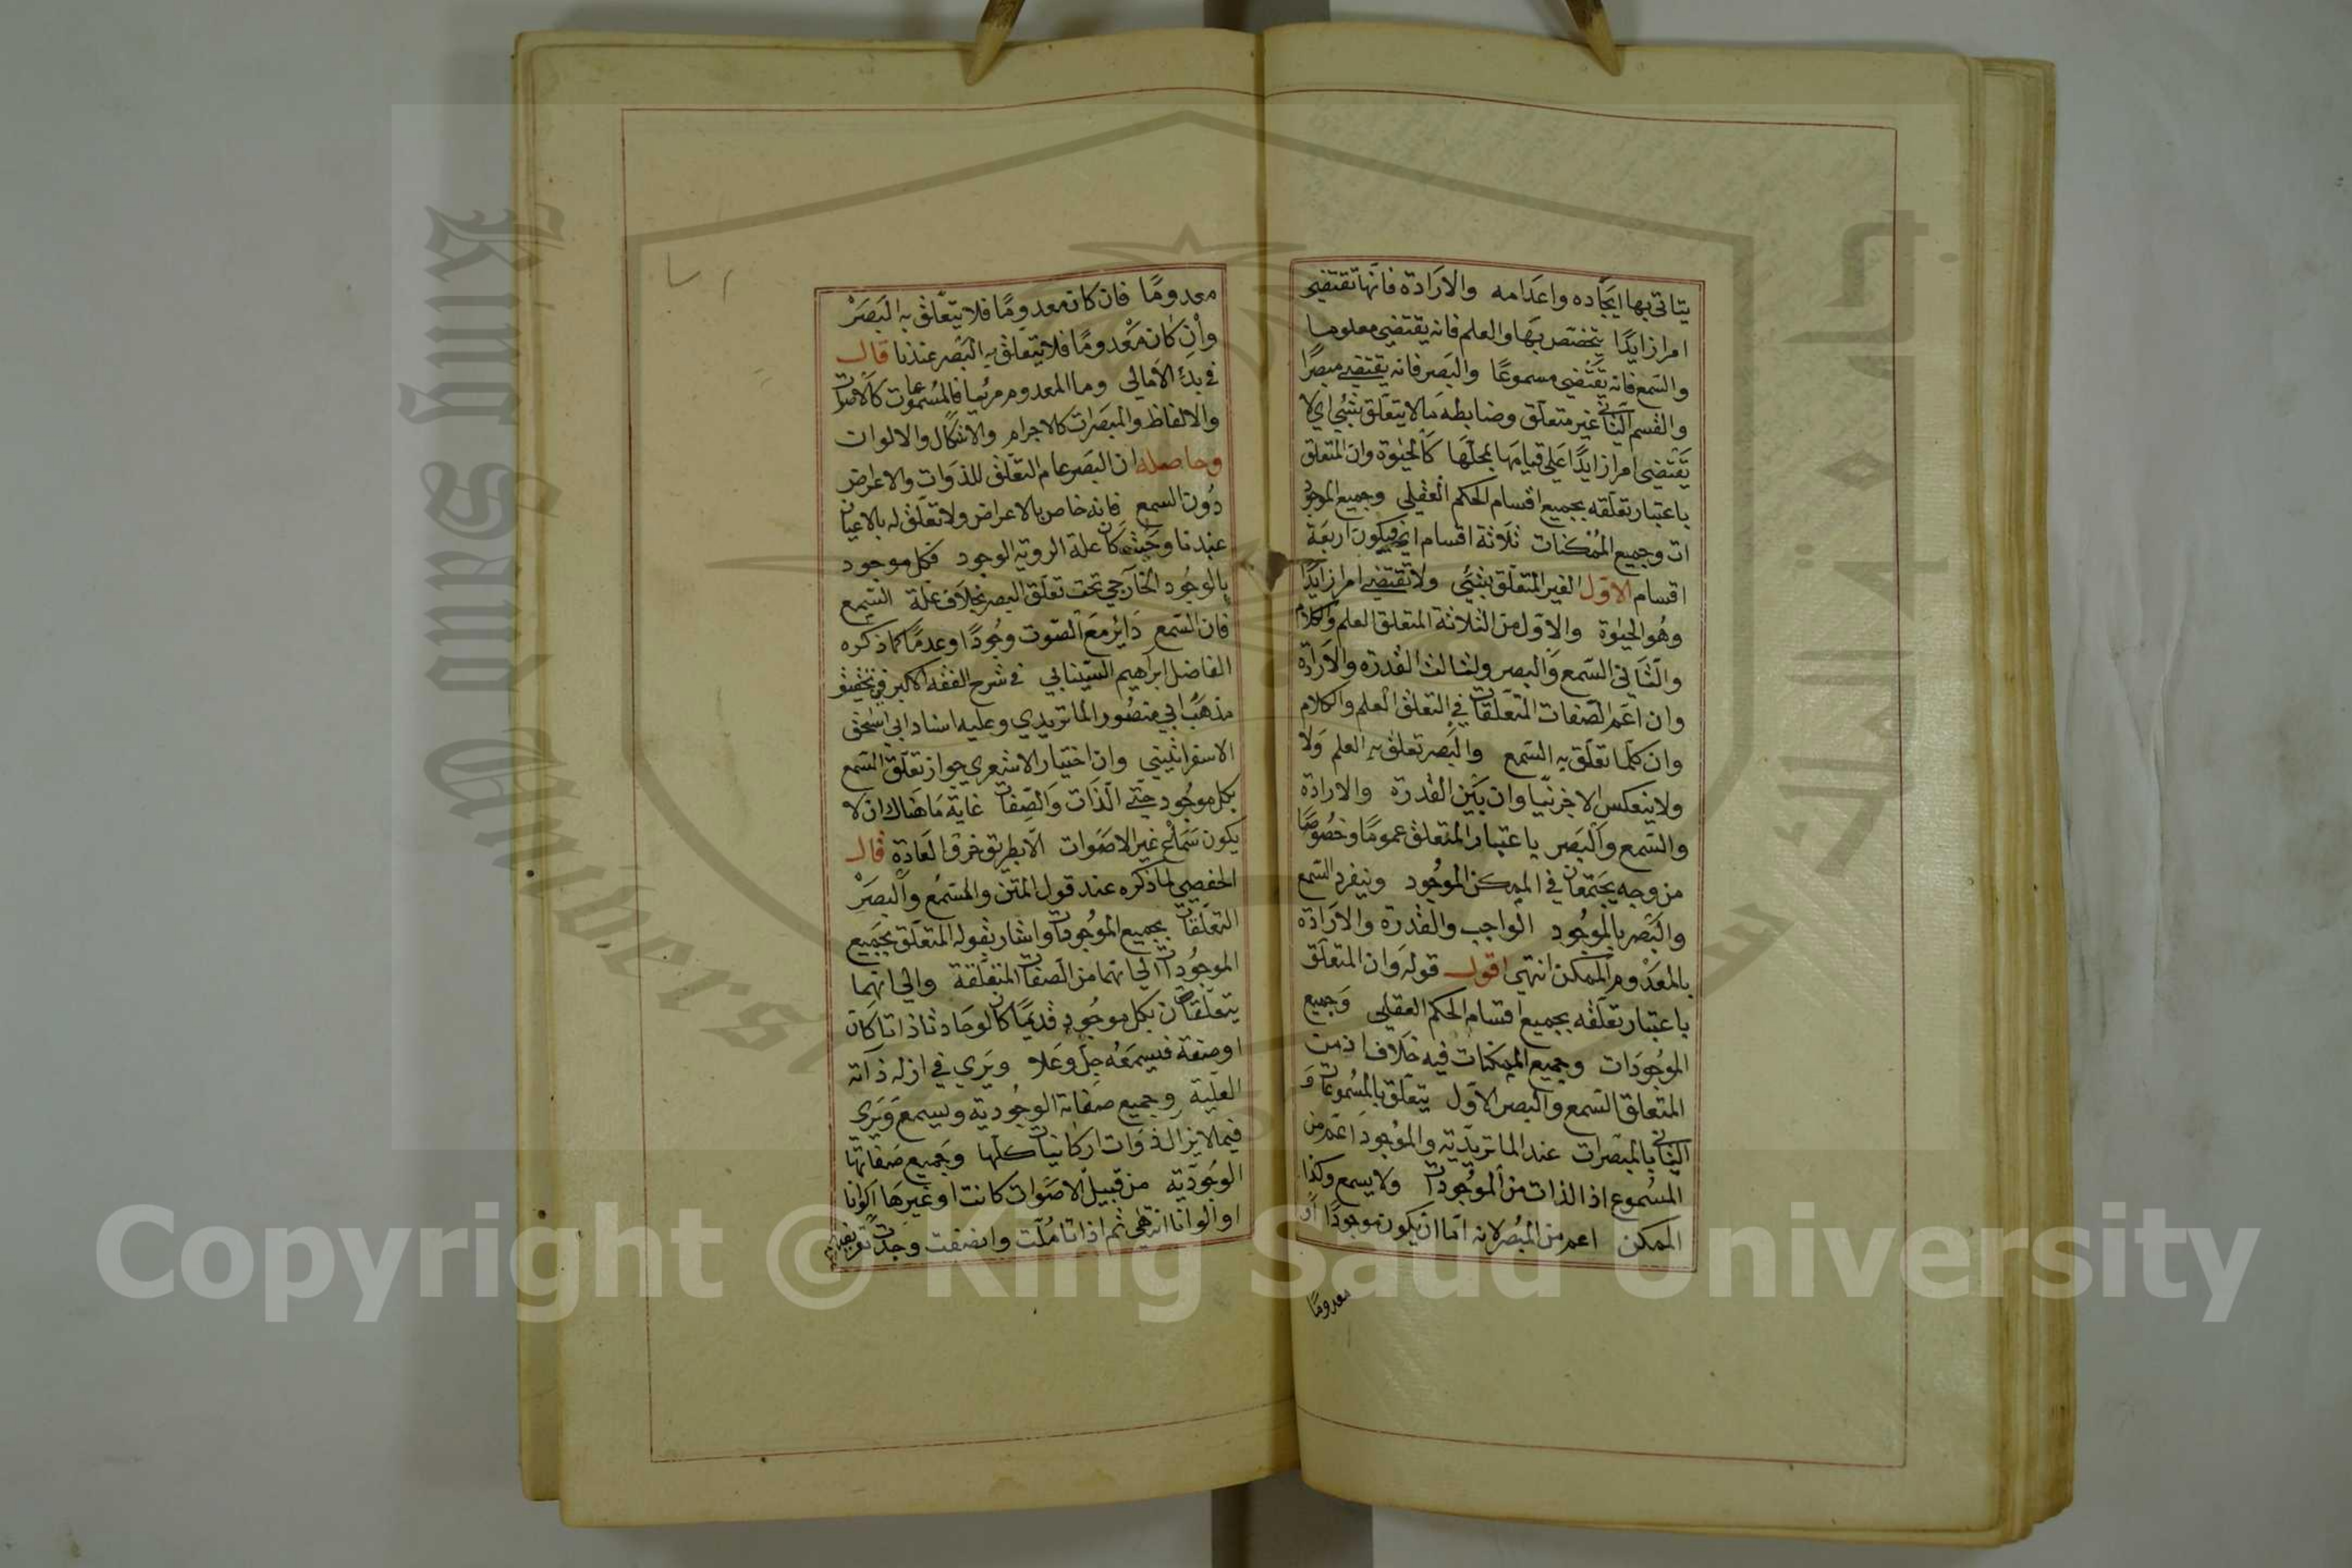 يتاتى بها ايجاده واعدامه والارادة فانها تقتضي
امرا زايدا يتخصص بها والعلم فانه يقتضي معلوما
والسمع فانه يقتضي مسموعًا والبصر فانه يقتضي مبصرًا
والقسم الثاني غير متعلق وضابطه ما لا يتعلق بشئ اي لا
يقتضي امرا زايدًا على قيامها بمحلها كالحيوة وان المتعلق
باعتبار تعلقه بجميع اقسام الحكم العقلي وجميع الموجود
ات وجميع الممكنات ثلاثة اقسام فيكون اربعة
اقسام الاول الغير المتعلق بشئ ولا تقتضي امرا زايدًا
وهو الحيوة والاول من الثلاثة المتعلق العلم والكلام
والثاني السمع والبصر ولثالث القدره والارادة
وان اعم الصفات المتعلقات في التعلق العلم والكلام
وان كلما تعلق به السمع والبصر تعلق به العلم ولا
ولا ينعكس الا جزئيا وان بين القدرة والارادة
والسمع والبصر باعتبار المتعلق عمومًا وخصوصًا
من وجه يجتمعان في الممكن الموجود وينفرد السمع
والبصر بالموجود الواجب والقدرة والارادة
بالمعدوم الممكن انتهى اقول قوله وان المتعلق
باعتبار تعلقه بجميع اقسام الحكم العقلي وجميع
الموجودات وجميع الممكنات فيه خلاف اذ من
المتعلق السمع والبصر الاول يتعلق بالمسموعات و
الثاني بالمبصرات عند الماتريدية والموجود اعم من
المسموع اذ الذات من الموجودات ولا يسمع وكذا
الممكن اعم من المبصر لانه اما ان يكون موجودًا او
معدومًا
معدومًا فان كان معدومًا فلا يتعلق به البصر
وان كان معدومًا فلا يتعلق به البصر عندنا قال
في بدئ الامالي وما المعدوم مرئيا فالمسموعات كالاصوات
والالفاظ والمبصرات كالاجرام والاشكال والالوات
وحاصله ان البصر عام التعلق للذوات والاعراض
دون السمع فانه خاص بالاعراض ولا تعلق له بالاعيان
عندنا وحيث كان علة الروية الوجود فكل موجود
بالوجود الخارجي تحت تعلق البصر بخلاف علة السمع
فان السمع دائر مع الصوت وجودًا وعدمًا كما ذكره
الفاضل ابراهيم السينابي في شرح الفقه الاكبر في تحقيق
مذهب ابي منصور الماتريدي وعليه استاد ابي اسحق
الاسفرائيني وان اختيار الاشعري جواز تعلق السمع
بكل موجود حتى الذات والصفات غاية ما هناك ان لا
يكون سماع غير الاصوات الا بطريق خرق العادة قال
الحفصي لما ذكره عند قول المتن والسمع والبصر
المتعلقان بجميع الموجودات واشار بقوله المتعلق بجميع
الموجودات الى انهما من الصفات المتعلقة والى انهما
يتعلقان بكل موجود قديمًا كان او حادثا ذاتا كان
او صفة فيسمعه جل وعلا ويرى في ازله ذاته
العلية وجميع صفاته الوجودية ويسمع ويرى
فيما لا يزال ذوات الكائنات كلها وجميع صفاتها
الوجودية من قبيل الاصوات كانت او غيرها اكوانا
او الوانا انتهى ثم اذا تاملت وانصفت وجدت
Copyright © King Saud University
King Saud University